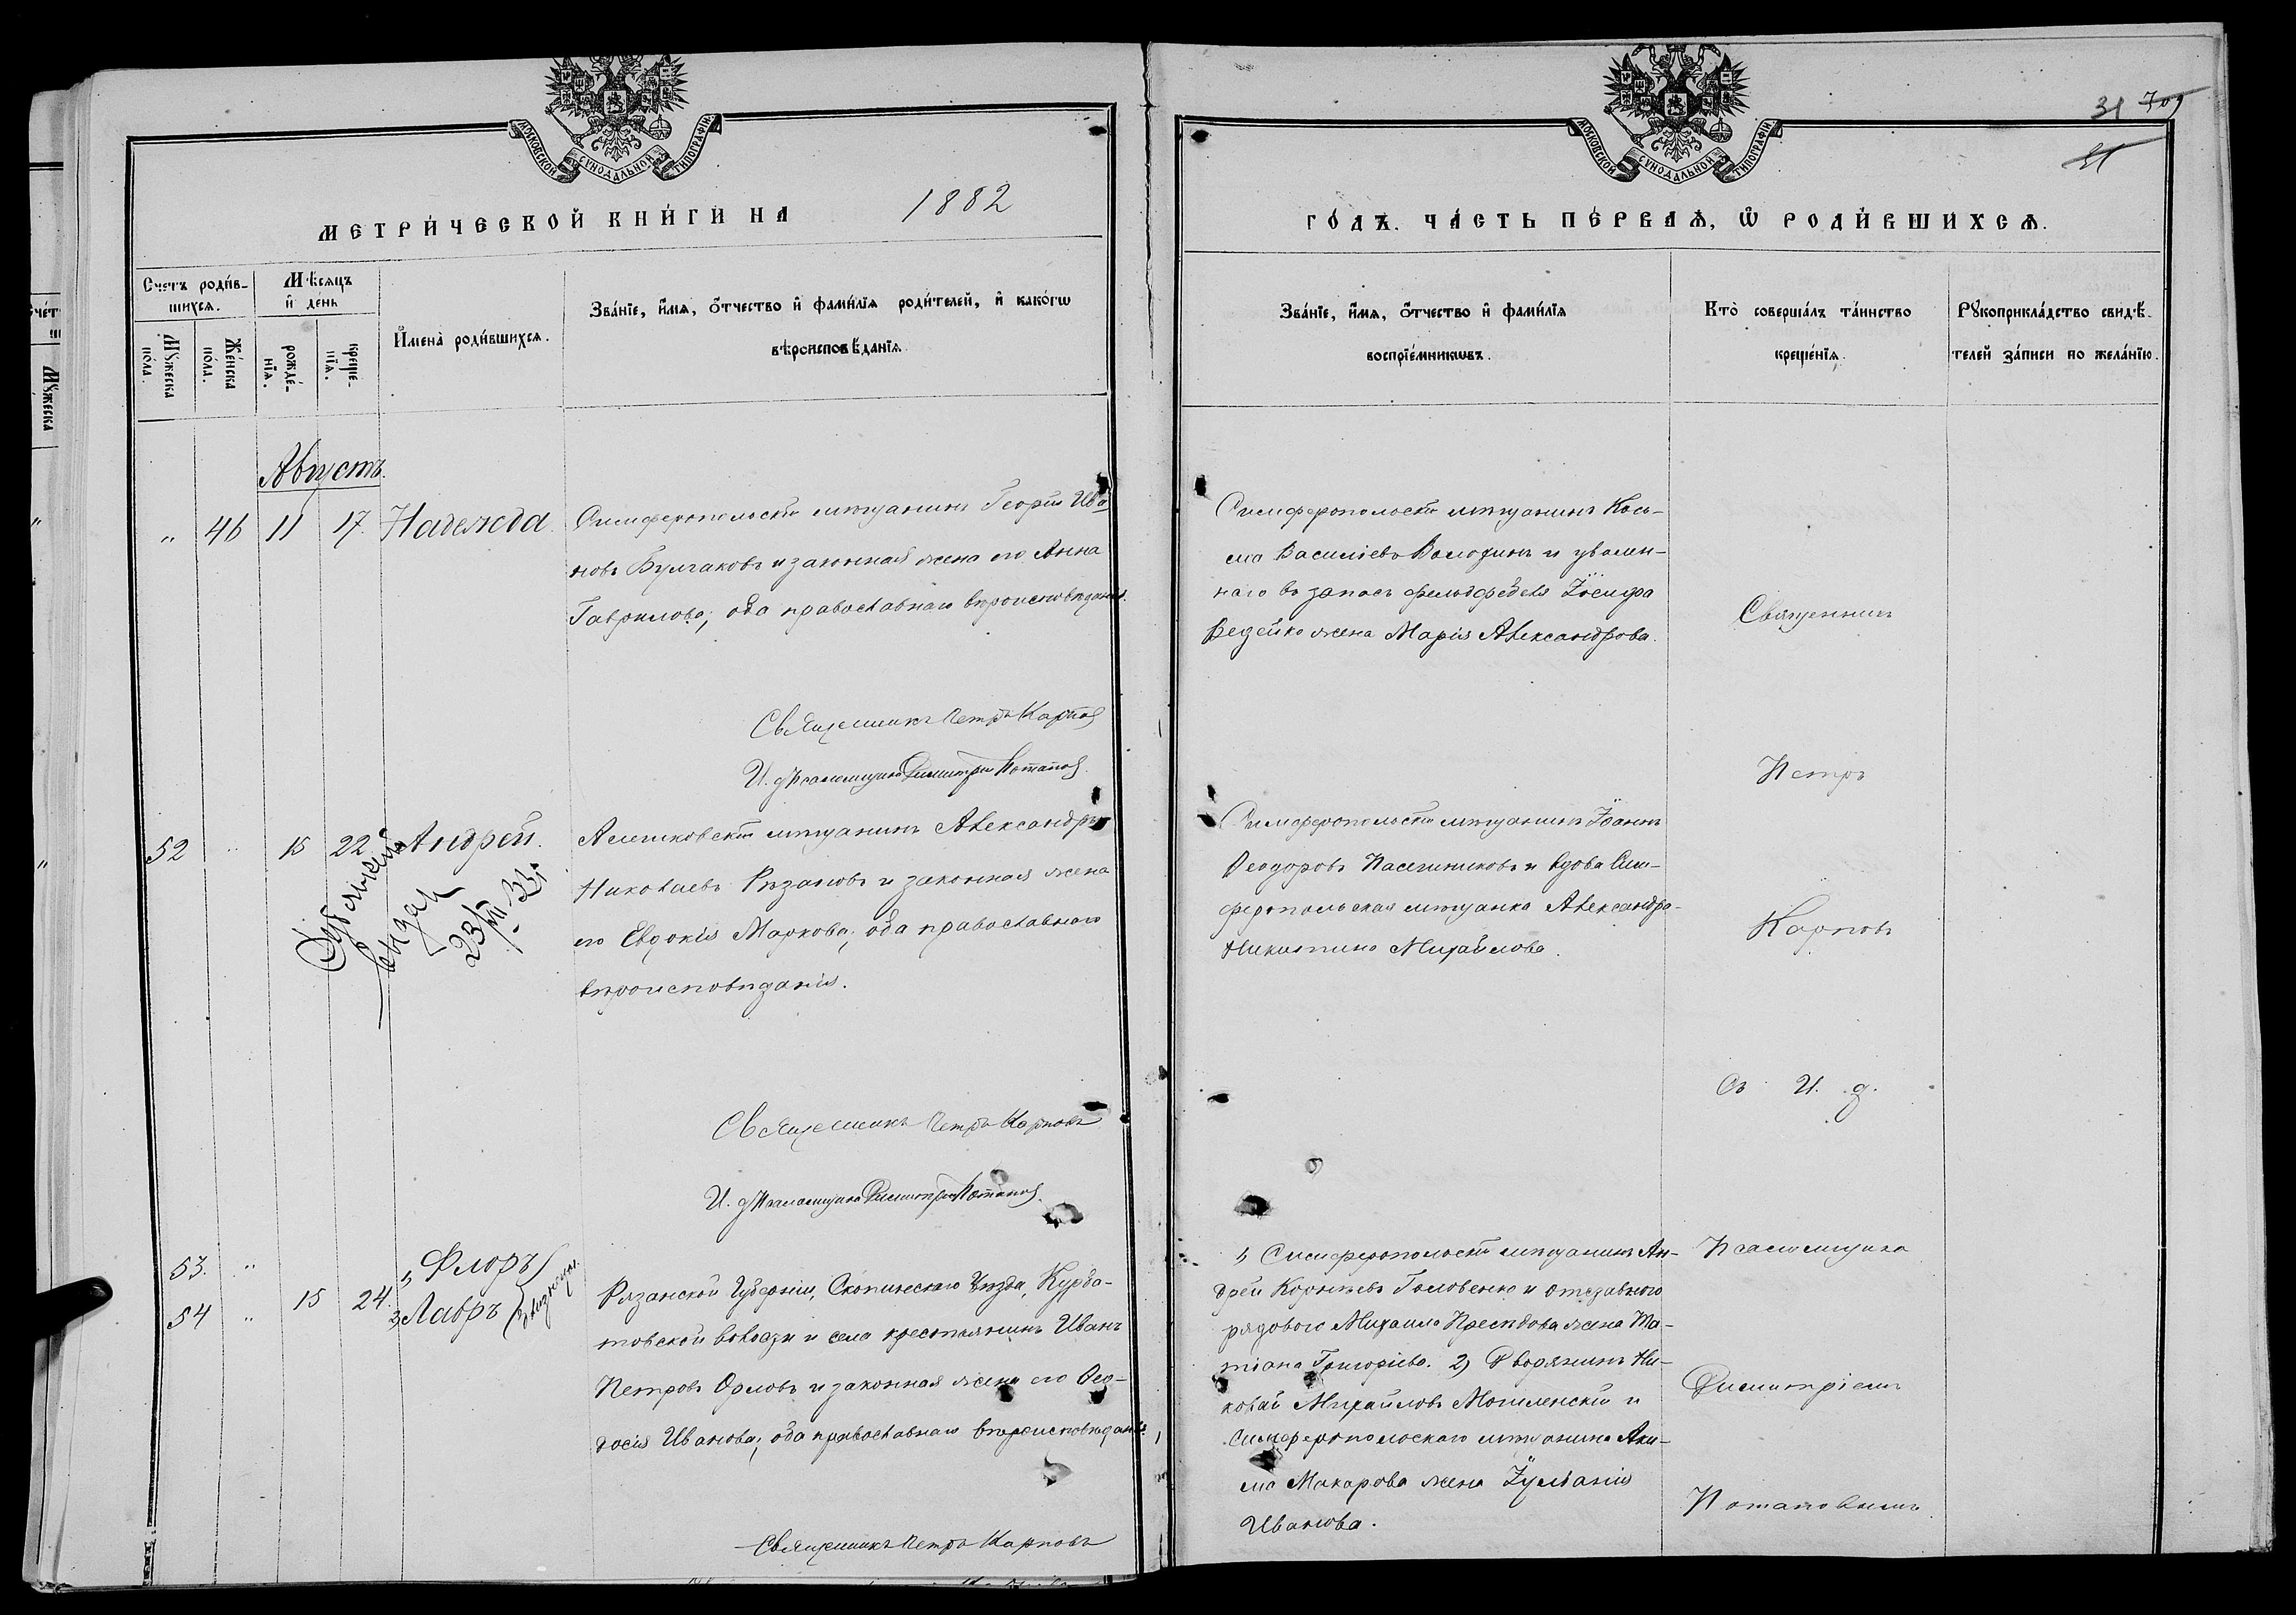 МОСКОВСКОЙ СѴНОДАЛЬНОЙ ТИПОГРАФІИ
МЕТРИ́ЧЕСКОЙ КНИ́ГИ НА 1882
Счетъ роди́в-
шихся.
Мꙋ́жеска
по́ла.
Же́нска
по́ла.
Мѣ́сяцъ
и҆ де́нь
рожде́-
нїя.
креще́-
нїя.
И҆мена̀ роди́вшихся.
Зва́нїе, и҆́мя, ѻ҆́тчество и҆ фами́лїя роди́телей, и҆ како́гѡ
вѣроисповѣ́данїя
Августъ.
" 46 11 17 Надежда.
Симферопольскій мѣщанинъ Георгій Ива-
новъ Булгаковъ и законная жена его Анна
Гаврилова; оба православнаго вѣроисповѣданія.
Священникъ Петръ Карповъ
И. д. Псаломщика Димитрій Потаповъ.
52 " 15 22 Андрей.
выдан
23/VII 35
Алешковскій мѣщанинъ Александръ
Николаевъ Рязановъ и законная жена
его Евдокія Маркова; оба православнаго
вѣроисповѣданія.
Священникъ Петръ Карповъ
И. д. Псаломщика Димитрій Потаповъ.
53. "
54 "
15 24.
1, Флоръ
2, Лавръ
близнецы.
Рязанской Губерніи, Скопинскаго Уѣзда, Курба-
товской волости и села крестьянинъ Иванъ
Петровъ Орловъ и законная жена его Ѳео-
досія Иванова; оба православнаго вѣроисповѣданія.
Священникъ Петръ Карповъ
МОСКОВСКОЙ СѴНОДАЛЬНОЙ ТИПОГРАФІИ
31 709
31
ГО́ДЪ. ЧА́СТЬ ПЕ́РВАѦ, Ѡ҆ РОДИ́ВШИХСѦ.
Зва́нїе, и҆́мя, ѻ҆́тчество и҆ фами́лїя
воспрїе́мникѡвъ.
Кто̀ соверша́лъ та́инство
креще́нїя.
Рꙋкоприкла́дство свидѣ́-
телей за́писи по жела́нїю.
Симферопольскій мѣщанинъ Кось-
ма Василіевъ Волохинъ и уволен-
наго въ запасъ фельдфебеля Іосифа
Ведейко жена Марія Александрова.
Священникъ
Петръ
Симферопольскій мѣщанинъ Іоаннъ
Ѳеодоровъ Пасечниковъ и вдова Сим-
феропольская мѣщанка Александра
Никитина Михайлова.
Карповъ
Съ И. д.
1, Симферопольскій мѣщанинъ Ан-
дрей Корнѣевъ Головенко и отставного
рядового Михаила Преѣдова жена Та-
тіана Григоріева. 2) Дворянинъ Ни-
колай Михайловъ Могиленскій и
Симферопольскаго мѣщанина Аки-
ма Макарова жена Іуліанія
Иванова.
Псаломщика
Димитріемъ
Потаповымъ